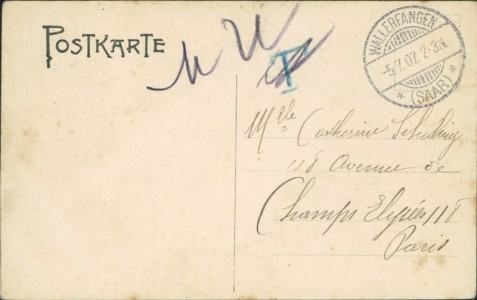 POSTKARTE
T
WALLERFANGEN
-5.7.07. 2-3N.
* (SAAR) *
Mlle Catherine
118 Avenue de
Champs Elysées 118
Paris